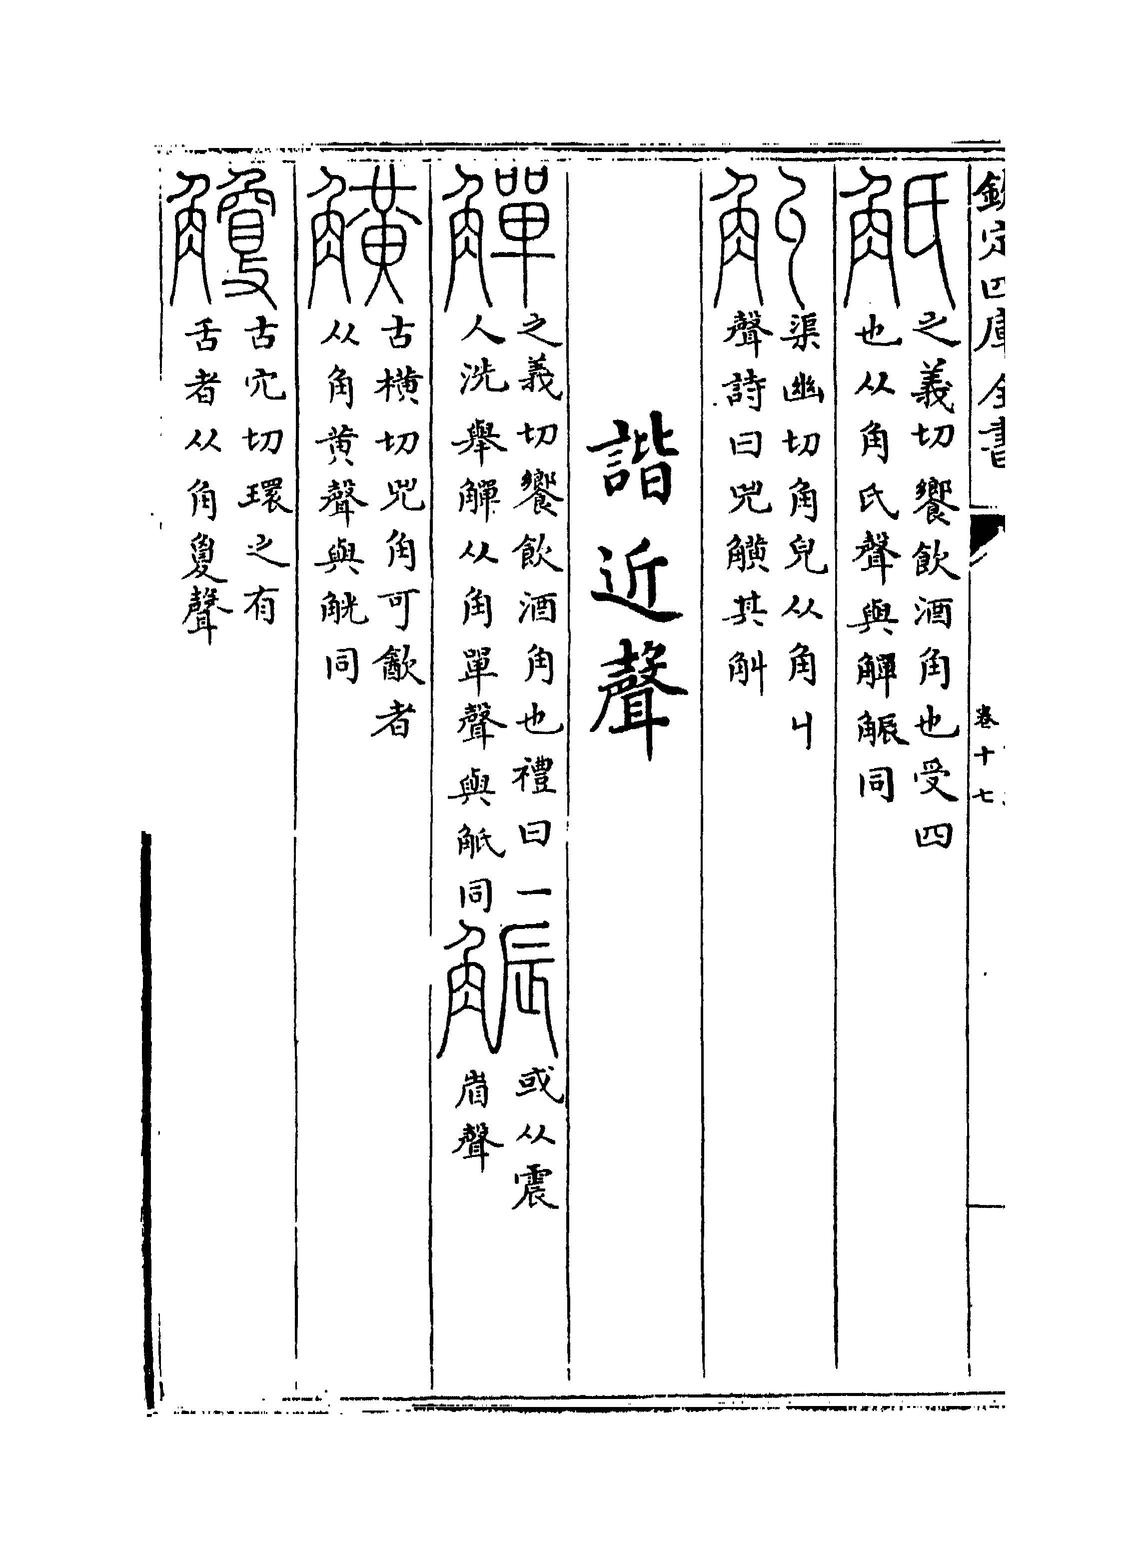 欽定四庫全書
卷十七
觗
之義切饗飲酒角也受四
也从角氏聲與觶䚈同
觓
渠幽切角皃从角丩
聲詩曰兕觵其觓
諧近聲
觶
之義切饗飲酒角也禮曰一
人洗舉觶从角單聲與觗同
䚈
或从震
省聲
觵
古横切兕角可㱃者
从角黄聲與觥同
觼
古穴切環之有
舌者从角敻聲